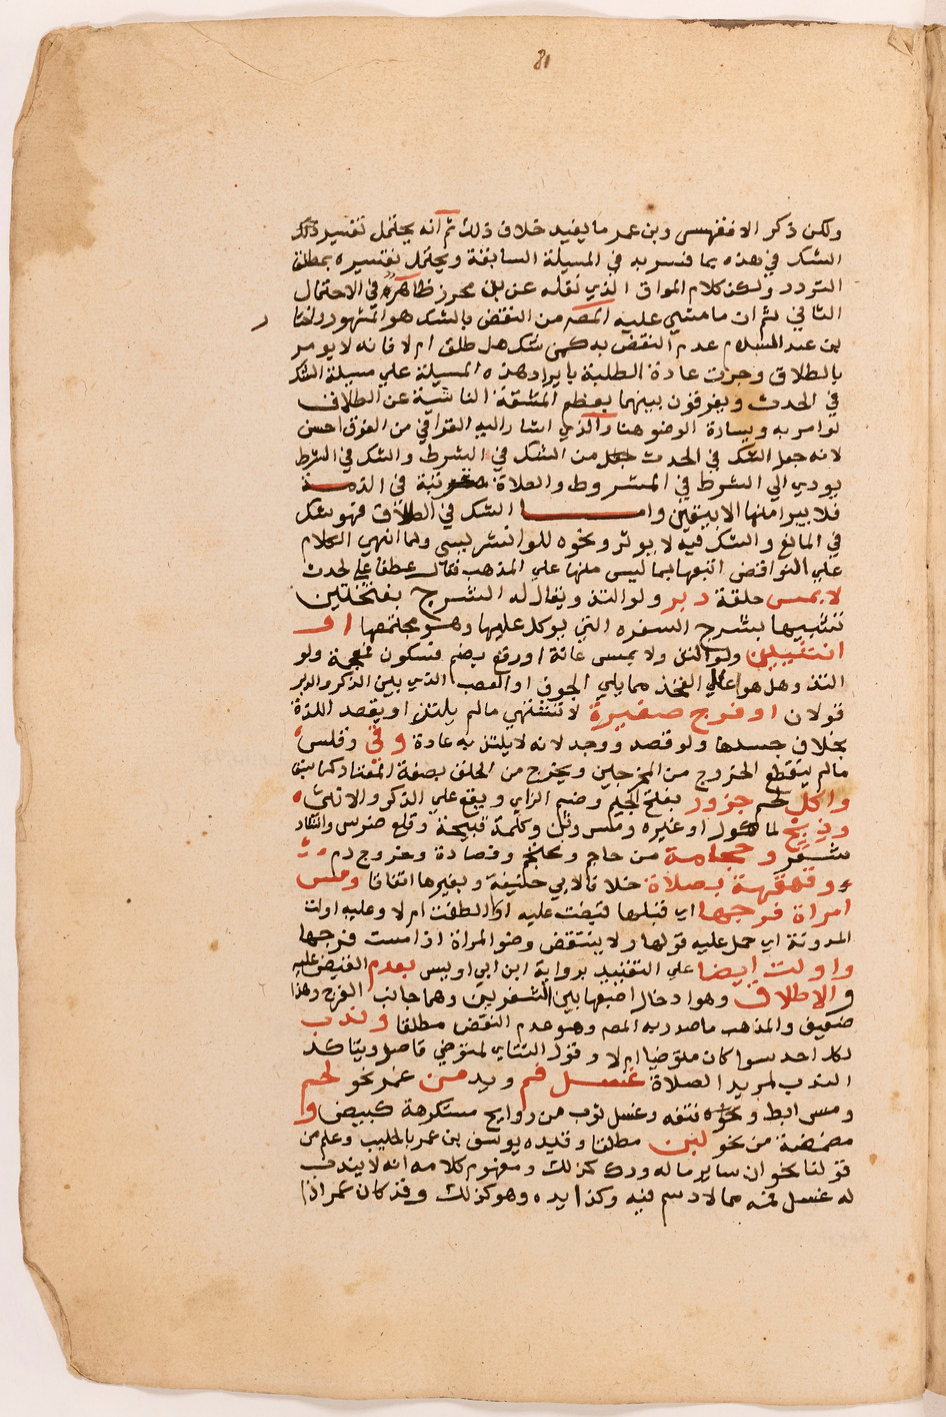 81
ولكن ذكر الاقفهسي وبن عمر ما يفيد خلاف ذلك ثم انه يحتمل تفسير ذلك
الشك في هذه بما فسر به في المسيلة السابقة ويحتمل تفسيره بمطلق
التردد ولكن كلام المواق الذي نقله عن بن محرز ظاهر في الاحتمال
الثاني ثم ان ما مشي عليه المص من النقض بالشك هو المشهور واختار
بن عبد السلام عدم النقض به كمن شك هل طلق ام لا فانه لا يومر
بالطلاق وجرت عادة الطلبة بايراد هذه المسيلة علي مسيلة الشك
في الحدث ويفرقون بينهما بعظم المشقة الناشية عن الطلاق
لو امر به ويسارة الوضو هنا والذي اشار اليه القرافي من الفرق احسن
لانه جعل الشك في الحدث من الشك في الشرط والشك في الشرط
يودي الي الشرط في المشروط والصلاة مترتبة في الذمة
فلا يبرا منها الا بيقين واما الشك في الطلاق فهو شك
في المانع والشك فيه لا يوثر ونحوه للوانشريسي ولما انهي الكلام
علي النواقض اتبعها بما ليس منها علي المذهب فقال عطفا علي لحدث
لا بمس حلقة دبر ولو التذ ويقال له الشرج بفتحتين
تشبيها بشرج السفره التي يوكل عليها وهو مجتمعها او
انثيين ولو التذ ولا بمس عانة او رفغ بضم فسكون فمعجمة ولو
التذ وهل هو اعلي الفخذ مما يلي الجوف او العصب الذي بين الذكر والدبر
قولان او فرج صغيرة لا تشتهي مالم يلتذ او يقصد اللذة
بخلاف جسدها ولو قصد ووجد لانه لا يلتذ به عادة وقي وقلس
مالم ينقطع الخروج من المخرجين ويخرج من الحلق بصفة المعتاد كما سبق
واكل لحم جزور بفتح الجيم وضم الزاي ويقع علي الذكر والانثي
وذبح لماكول او غيره ومس وثن وكلمة قبيحة وقلع ضرس وانشاد
شعر وحجامة من حاجم ومحتجم وفصادة وخروج دم
وقهقهة بصلاة خلافا لابي حنيفة وبغيرها اتفاقا ومس
امراة فرجها اي قبلها قبضت عليه او الطفت ام لا وعليه اولت
المدونة اي حمل عليه قولها ولا ينتقض وضو المراة اذا مست فرجها
واولت ايضا علي التقييد برواية ابن ابي اويس بعدم القبض عليه
والالطاف وهو ادخال اصبعها بين الشفرين وهما جانبا الفرج وهذا
ضعيف والمذهب ما صدر به المص وهو عدم النقض مطلقا وندب
لكل احد سوا كان متوضيا ام لا وقول التتاي لمتوضي قاصر ويتاكد
الندب لمريد الصلاة غسل فم ويد من غمر نحو لحم
ومس ابط ونحوه نتفه وغسل ثوب من روايح مستكرهة كبيض و
مضمضة من نحو لبن مطلقا وقيده يوسف بن عمر بالحليب وعلم من
قولنا نحو ان ساير ما له ودك كذلك ومفهوم كلامه انه لا يندب
له غسل فمه مما لا دسم فيه وكذا يده وهو كذلك وقد كان عمر اذا